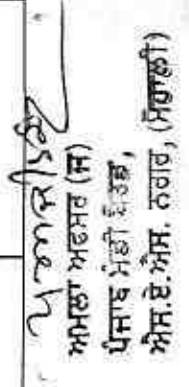 ਅਮਲਾ ਅਫਸਰ (ਜ)
ਪੰਜਾਬ ਮੰਡੀ ਬੋਰਡ,
ਐਸ.ਏ.ਐਸ. ਨਗਰ, (ਮੋਹਾਲੀ)